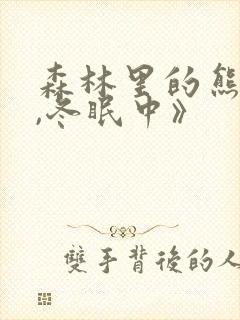 森林里的熊
,冬眠中》
雙手背後的人